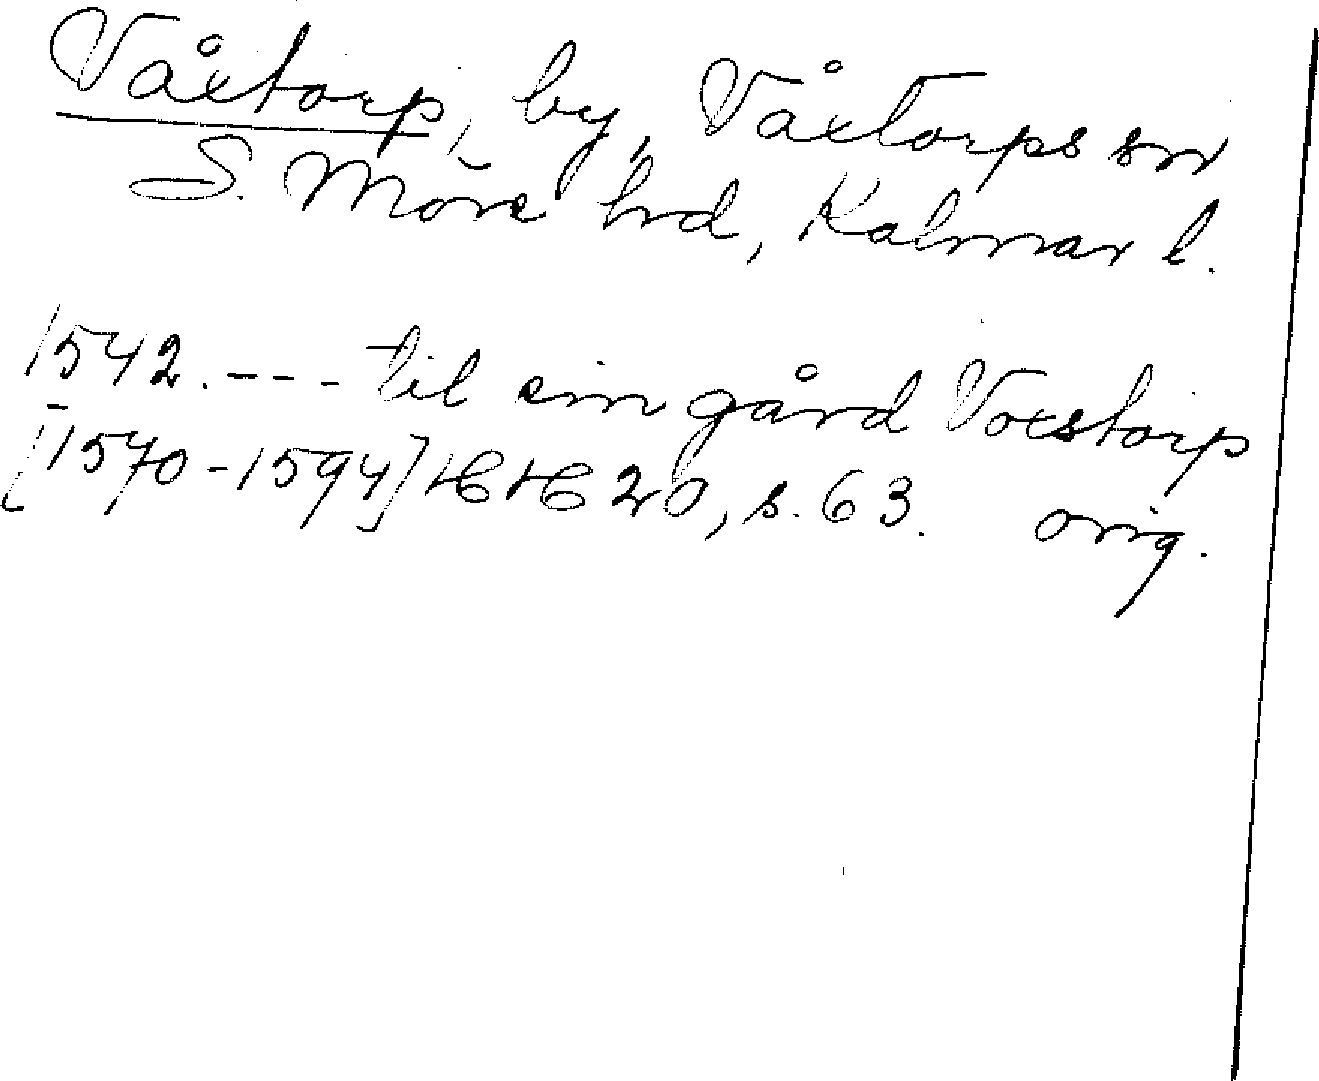 Våxtorp, by, Våxtorps sn
S. Möre hrd, Kalmar l.
1542. --- til sin gård Voxstorp
[1570-1594] HH 20, s. 63. orig.